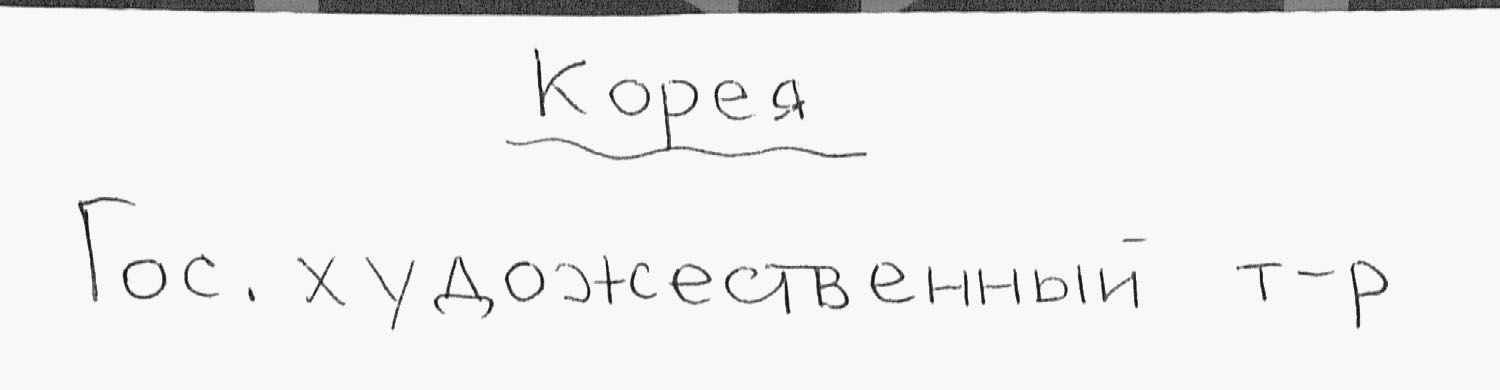 Корея
Гос. художественный т-р